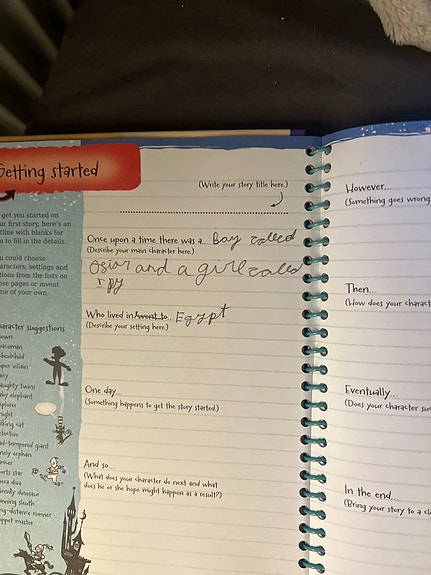 Getting started
get you started on
ur first story, here's an
tline with blanks for
u to fill in the details.
u could choose
aracters, settings and
tions from the lists on
ese pages or invent
me of your own.
aracter suggestions
own
aseman
hoolchild
per villain
iry
aughty twins
by elephant
xplorer
ight
lking cat
etective
d-tempered giant
nely orphan
ancer
orts star
pera diva
iendly dinosaur
nning sleuth
ng-distance runner
ppet master
(Write your story title here.)
Once upon a time there was a... Boy called
(Describe your main character here.)
Osiar and a girl called
Ipy
Who lived in/went to... Egypt
(Describe your setting here.)
One day...
(Something happens to get the story started.)
And so...
(What does your character do next and what
does he or she hope might happen as a result?)
However...
(Something goes wrong
Then...
(How does your charact
Eventually...
(Does your character suc
In the end...
(Bring your story to a cl